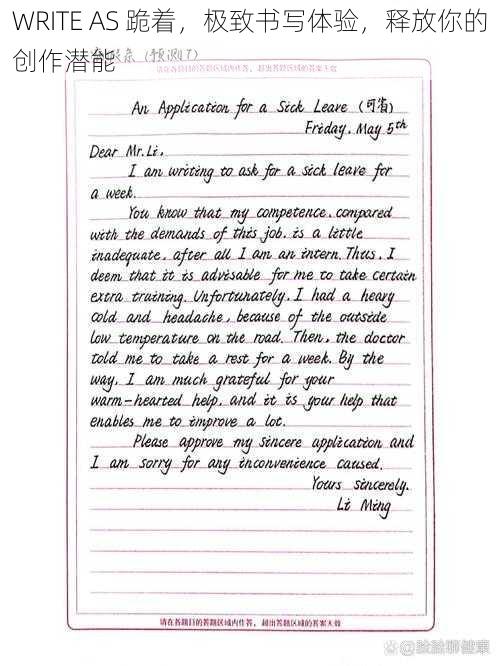 WRITE AS 跪着，极致书写体验，释放你的
创作潜能
条（预测7）
请在各题目的答题区域内作答，超出答题区域的答案无效
An Application for a Sick Leave (可省)
Friday, May 5th
Dear Mr. Li,
I am writing to ask for a sick leave for
a week.
You know that my competence, compared
with the demands of this job, is a little
inadequate, after all I am an intern. Thus, I
deem that it is advisable for me to take certain
extra training. Unfortunately, I had a heavy
cold and headache, because of the outside
low temperature on the road. Then, the doctor
told me to take a rest for a week. By the
way, I am much grateful for your
warm-hearted help, and it is your help that
enables me to improve a lot.
Please approve my sincere application and
I am sorry for any inconvenience caused.
Yours sincerely,
Li Ming
请在各题目的答题区域内作答，超出答题区域的答案无效
@脸脸聊健康